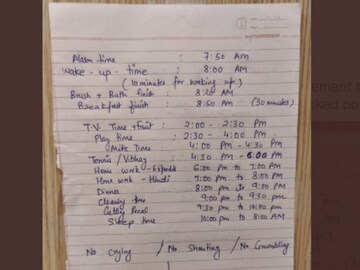 Alarm time : 7:50 AM
Wake-up-time : 8:00 AM
(10 minutes for waking up)
Brush + Bath finish : 8:20 AM
Breakfast finish : 8:50 AM (30 minutes)
T.V. Time + fruit : 2:00 - 2:30 PM
Play time : 2:30 - 4:00 PM
Milk Time : 4:00 PM - 4:30 PM
Tennis / : 4:30 PM - 6:00 PM
Home work - : 6:00 PM to 7:00 PM
Home work - Hindi : 7:00 PM to 8:00 PM
Dinner : 8:00 PM to 9:00 PM
time : 9:00 PM to 9:30 PM
9:30 PM to 10:00 PM
Sleep time : 10:00 PM to 8:00 AM
No Crying / No Shouting / No Grumbling